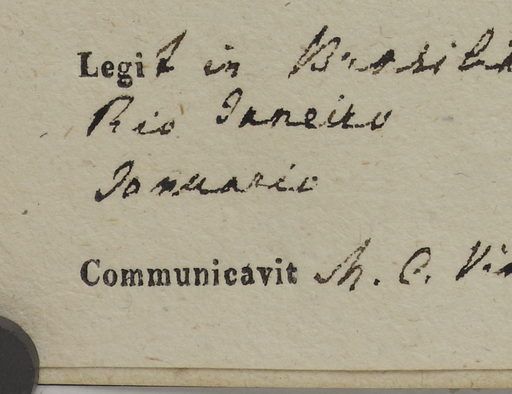 Legit in Brasili
Rio Janeiro
Januario
Communicavit Th. C. Vi